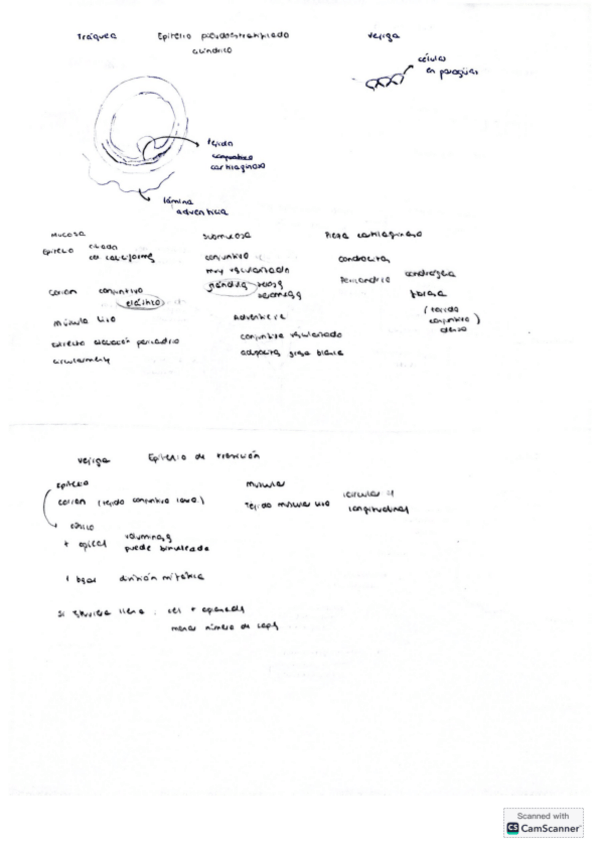 Tráquea Epitelio pseudoestratificado
cilíndrico
vejiga
células
en paraguas
tejido
conjuntivo
cartilaginoso
lámina
adventicia
Mucosa
Epitelio ciliado
cel caliciformes
corion conjuntivo
elástico
músculo liso
circularmente
submucosa
conjuntivo
muy vascularizado
glándulas
Adventicia
conjuntivo vascularizado
adipocitos grasa blanca
Pieza cartilaginosa
condrocitos
Pericondrio condrógena
fibrosa
(tejido
conjuntivo)
denso
vejiga Epitelio de transición
epitelio
corion (tejido conjuntivo laxo)
+ apical voluminosas
puede binucleada
división mitótica
muscular
Tejido muscular liso circular y
longitudinal
si estuviera llena: cel + aplanadas
menor número de capas
Scanned with
CS CamScanner